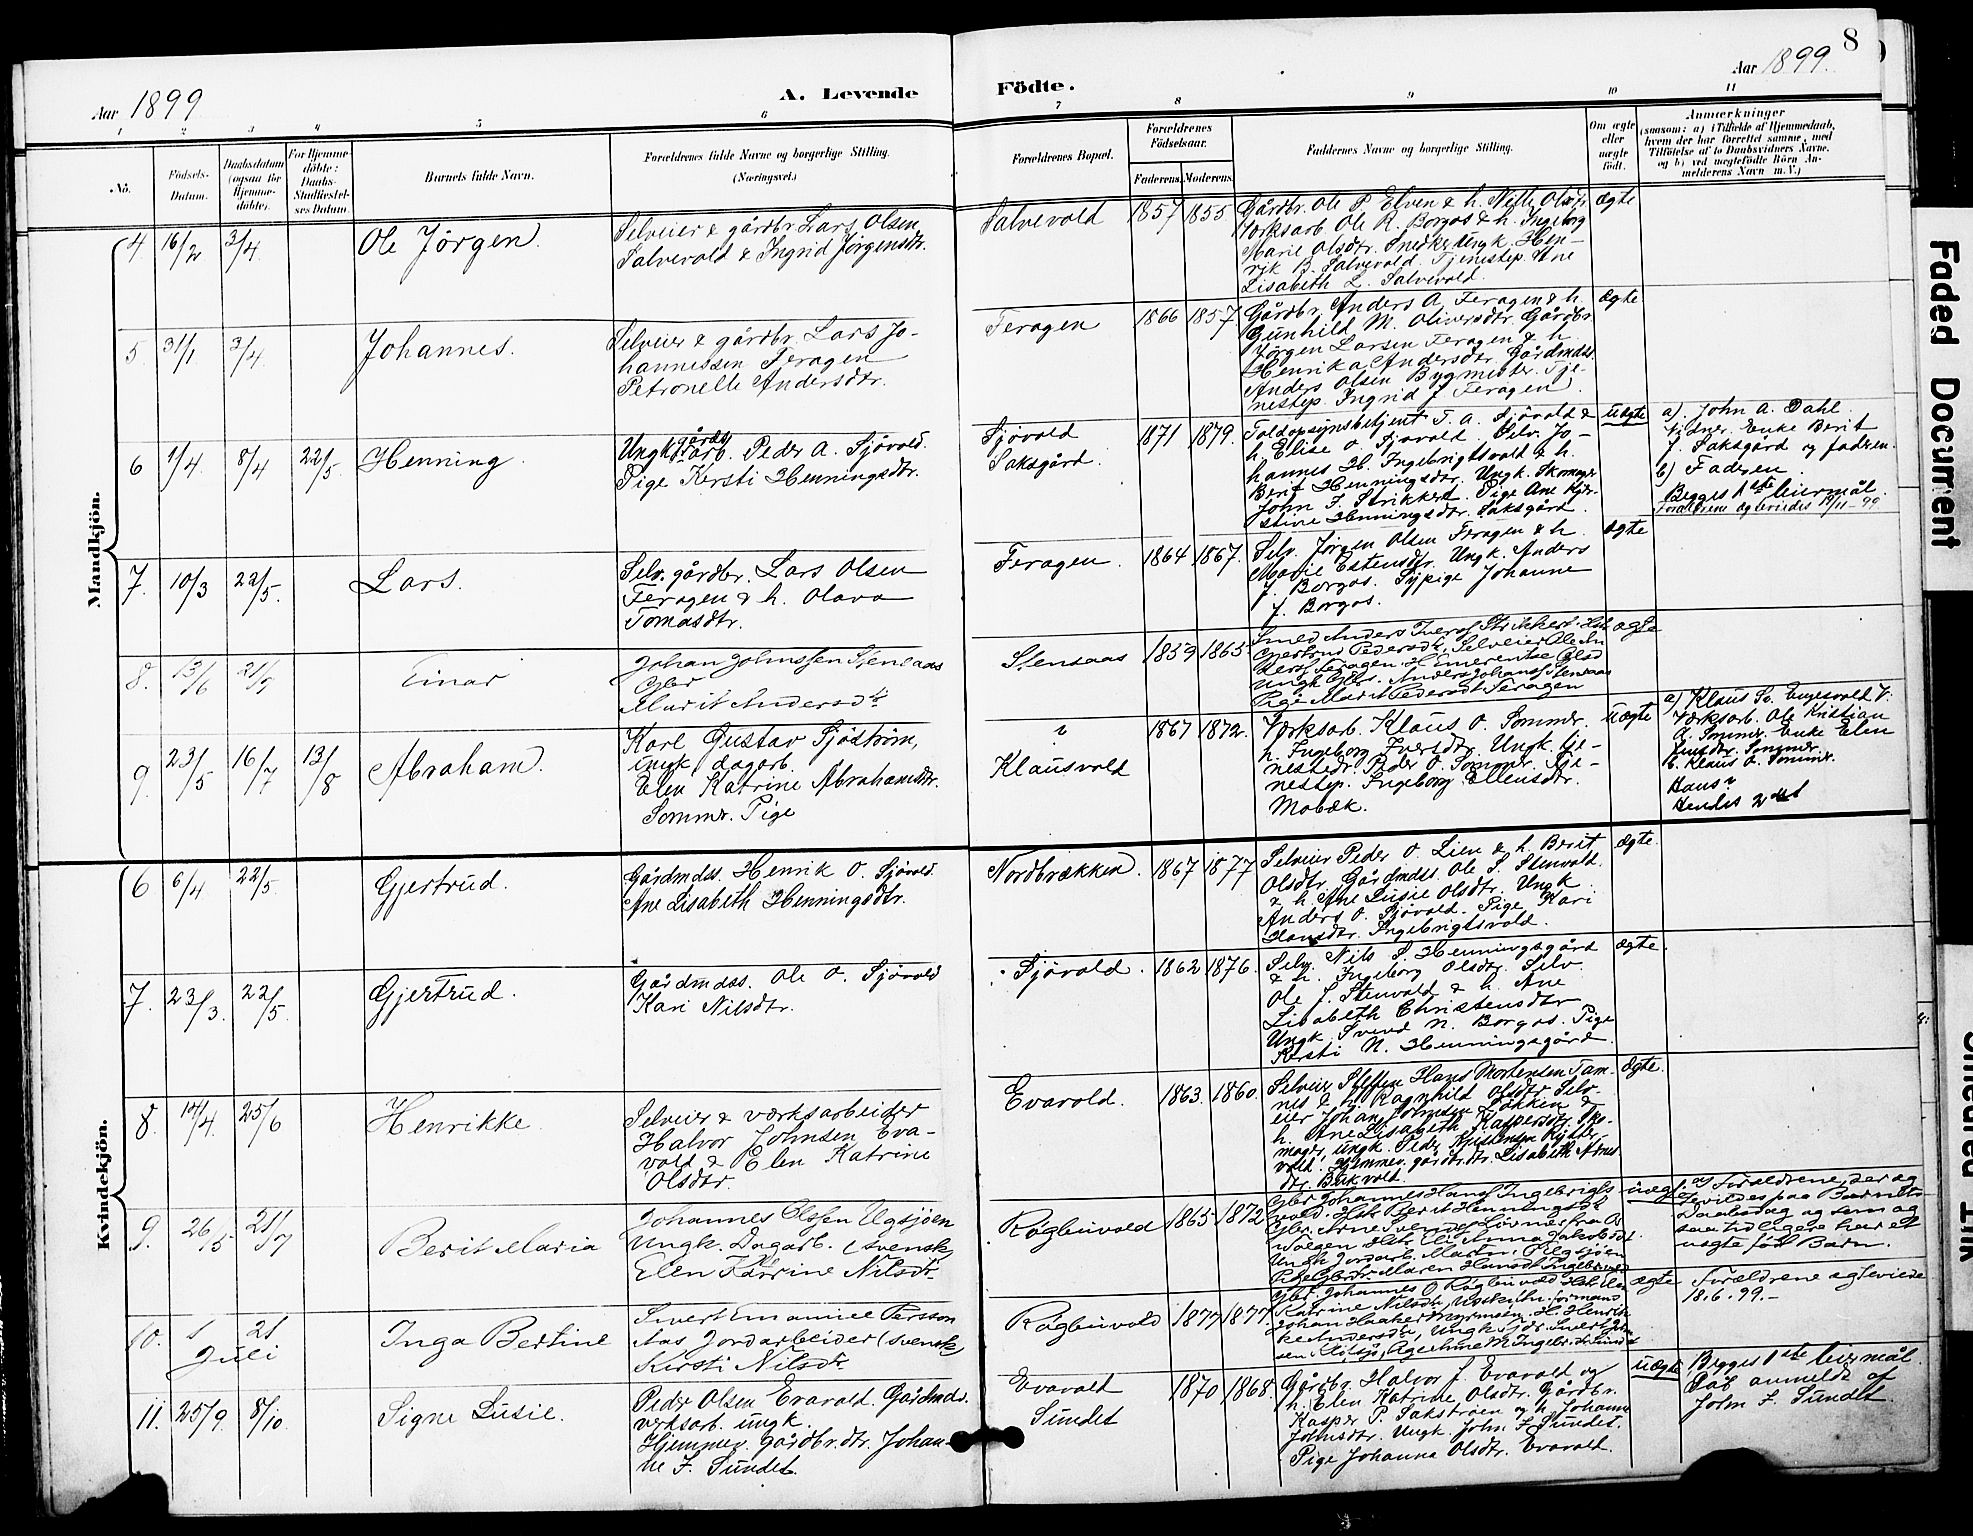 8
Aar 1899
A. Levende
Födte.
Aar 1899.
1 2 3 4 5 6 7 8 9 10 11
No.
Födsels-
Datum.
Daabsdatum
(ogsaa for
Hjemme-
döbte).
For Hjemme-
döbte:
Daabs-
Stadfæstel-
ses Datum.
Barnets fulde Navn.
Forældrenes fulde Navne og borgerlige Stilling.
(Næringsvei.)
Forældrenes Bopæl.
Forældrenes
Födselsaar.
Faderens. Moderens.
Faddernes Navne og borgerlige Stilling.
Om ægte
eller
uægte
födt.
Anmærkninger
(saasom: a) i Tilfælde af Hjemmedaab,
hvem der har forrettet samme, med
Tilföielse af to Daabsvidners Navne,
og b) ved uægtefödte Börn An-
melderens Navn m. V.)
Mandkjön.
4. 16/2 3/4 Ole Jörgen.
Selveier & gårdbr. Lars Olsen
Salvevold & Ingrid Jörgensdtr.
Salvevold 1857 1855
Gårdbr. Ole P. Elven & h. Nille Olsdtr.
Værksarb. Ole R. Borgos & h. Ingeborg
Marie Olsdtr. Snedker Ungk. Hen-
rik B. Salvevold. Tjenestep. Ane
Lisabeth L. Salvevold.
ægte
5. 31/1 3/4 Johannes.
Selveier & gårdbr. Lars Jo-
hannessen Feragen
Petronelle Andersdtr.
Feragen 1866 1857
Gårdbr. Anders A. Feragen & h.
Gunhild M. Oliversdtr. Gårdbr.
Jörgen Larsen Feragen & h.
Henrika Andersdtr. Gårdmds.
Anders Olsen Bygmester. Tje-
nestep. Ingrid J. Feragen.
ægte
6 1/4. 8/4 22/5. Henning.
Ungk. gårds
arb. Peder A. Sjövold.
Pige Kersti Henningsdtr.
Sjövold
Saksgård.
1871 1879.
Toldopsynsbetjent T. A. Sjövold &
h. Elise O. Sjövold. Selv. Jo-
hannes H. Ingebrigtsvold & h.
Berit Henningsdtr. Ungk. Skomager
John J. Strikkert. Pige Ane Kjer-
stine Henningsdtr. Saksgård.
uægte
a). John A. Dahl.
Vidner. Enke Berit
J. Saksgård og faderen.
b) Faderen.
Begges 1ste leiermål.
Forældrene ægteviedes 19/11-99.
7. 10/3 22/5. Lars.
Selv. gårdbr. Lars Olsen
Feragen & h. Olava
Tomasdtr.
Feragen. 1864 1867.
Selv. Jörgen Olsen Feragen & h.
Marie Estensdtr. Ungk. Anders
J. Borgos. Sypige Johanne
J. Borgos.
ægte
8. 13/6 21/7 Einar
Johan Johnssen Stensaas
Gbr
Marit Andersdtr.
Stensaas 1859 1865
Smed Anders Iversf Strikkert Hst
Gjertrud Pedersdtr, Selveier Ole An
dersf Feragen H Emerentse Olsd
Ungk Gbrs. Anders Johansf Stensaas
Pige Marit Pedersdt Feragen
ægte
9. 23/5 16/7 13/8 Abraham.
Karl Gustav Sjöström,
ungk. dagarb.
Elen Katrine Abrahamsdtr.
Sommer. Pige
?
Klausvold
1867 1872.
Værksarb. Klaus O. Sommer.
h. Ingeborg Iversdtr. Ungk. tje-
nestedr. Peder O. Sommer. Tje-
nestep. Ingeborg Ellensdtr.
Mobæk.
uægte
a) Klaus So. Engesvold V.
Værksarb. Ole Kristian
A. Sommer. Enke Elen
Jensdtr. Sommer.
b. Klaus O. Sommer.
Hans ?
Hendes 2det
Kvindekjön.
6 6/4 22/5. Gjertrud.
Gårdmds. Henrik O. Sjövold.
Ane Lisabeth Henningsdtr.
Nordbrækken. 1867 1877
Selveier Peder O. Lien & h. Berit
Olsdtr. Gårdmds. Ole S. Stenvold.
& h. Ane Lusie Olsdtr. Ungk.
Anders O. Sjövold. Pige Kari
Hansdtr. Ingebrigtsvold.
ægte.
7. 23/3. 22/5. Gjertrud.
Gårdmdss. Ole O. Sjövold
Kari Nilsdtr.
Sjövold. 1862 1876.
Selv. Nils S. Henningsgård
& h. Ingeborg Olsdtr. Selv.
Ole J. Stenvold & h. Ane
Lisabeth Christensdtr
Ungk. Svend N. Borgos. Pige
Kersti N. Henningsgård.
ægte.
8. 14/4. 25/6 Henrikke.
Selveier & værksarbeider
Halvor Johnsen Eva-
vold & Elen Katrine
Olsdtr.
Evavold. 1863. 1860.
Selveier Steffen Hans Mortensen Tam-
nes & h. Ragnhild Olsdtr. Selv-
eier Johan Johnsen Bakken &
h. Ane Lisabeth Kaspersdtr. Sko-
mager, ungk. Peder Kristensen
vold. Hjemmev. gårdbr.dtr. Lisabeth Arnes
dtr. Bukvold.
ægte.
9. 26/5 21/7 Berit Maria
Johannes Olssen Ugsjöen
Ungk. Dagarb. (svensk)
Elen Katrine Nilsdtr.
Røgbuvold 1865 1872
Gbr Johannes Hansf Ingebrigts
vold. Hst Berit Henningsdt
Gbr. Arne Svends Lövnes fra Ø
Tolgen Hst. Eli Anna Jakobsdt.
Ungk Jordarb. Martin O Ugsjöen
Pige Gbrdtr Maren Hansdt Ingebrigtsvold
uægte
a) Forældrene, der ag
tevildes paa Barnets
Daabsdag og som og
saa tidligere har et
uægte född Barn.
10. 1 Juli 21 Inga Bertine
Sivert Emanuel Persson
Aas Jordarbeider (svensk)
Kirsti Nilsdtr
Røgbuvold 1877 1877.
Gbr. Johannes O Røgbuvold Hst Elen
Katrine Nilsdtr, Vaskeribr. formand
Johan Haaker Myrmoen. H. Henrik-
ke Andersdtr, Ungk.
ægte
Forældrene ægteviede
18.6.99.-
11. 25/9 8/10 Signe Lusie.
Peder Olsen Evavold. Gårdmds.
verksarb. ungk.
Hjemmev. gårdbr.dtr. Johan-
ne F. Sundet.
Evavold
Sundet
1870 1868.
Gårdbr. Halvor J. Evavold og
h. Elen Katrine Olsdtr. Gårdbr.
Kasper P. Sakstrøen og h. Johanne
Johnsdtr. Ungk. John F. Sundet.
Pige Johanna Olsdtr. Evavold.
uægte
Begges 1ste leiermål.
Dåb anmeldt af
John F. Sundet.
Faded Document
Smeared Ink